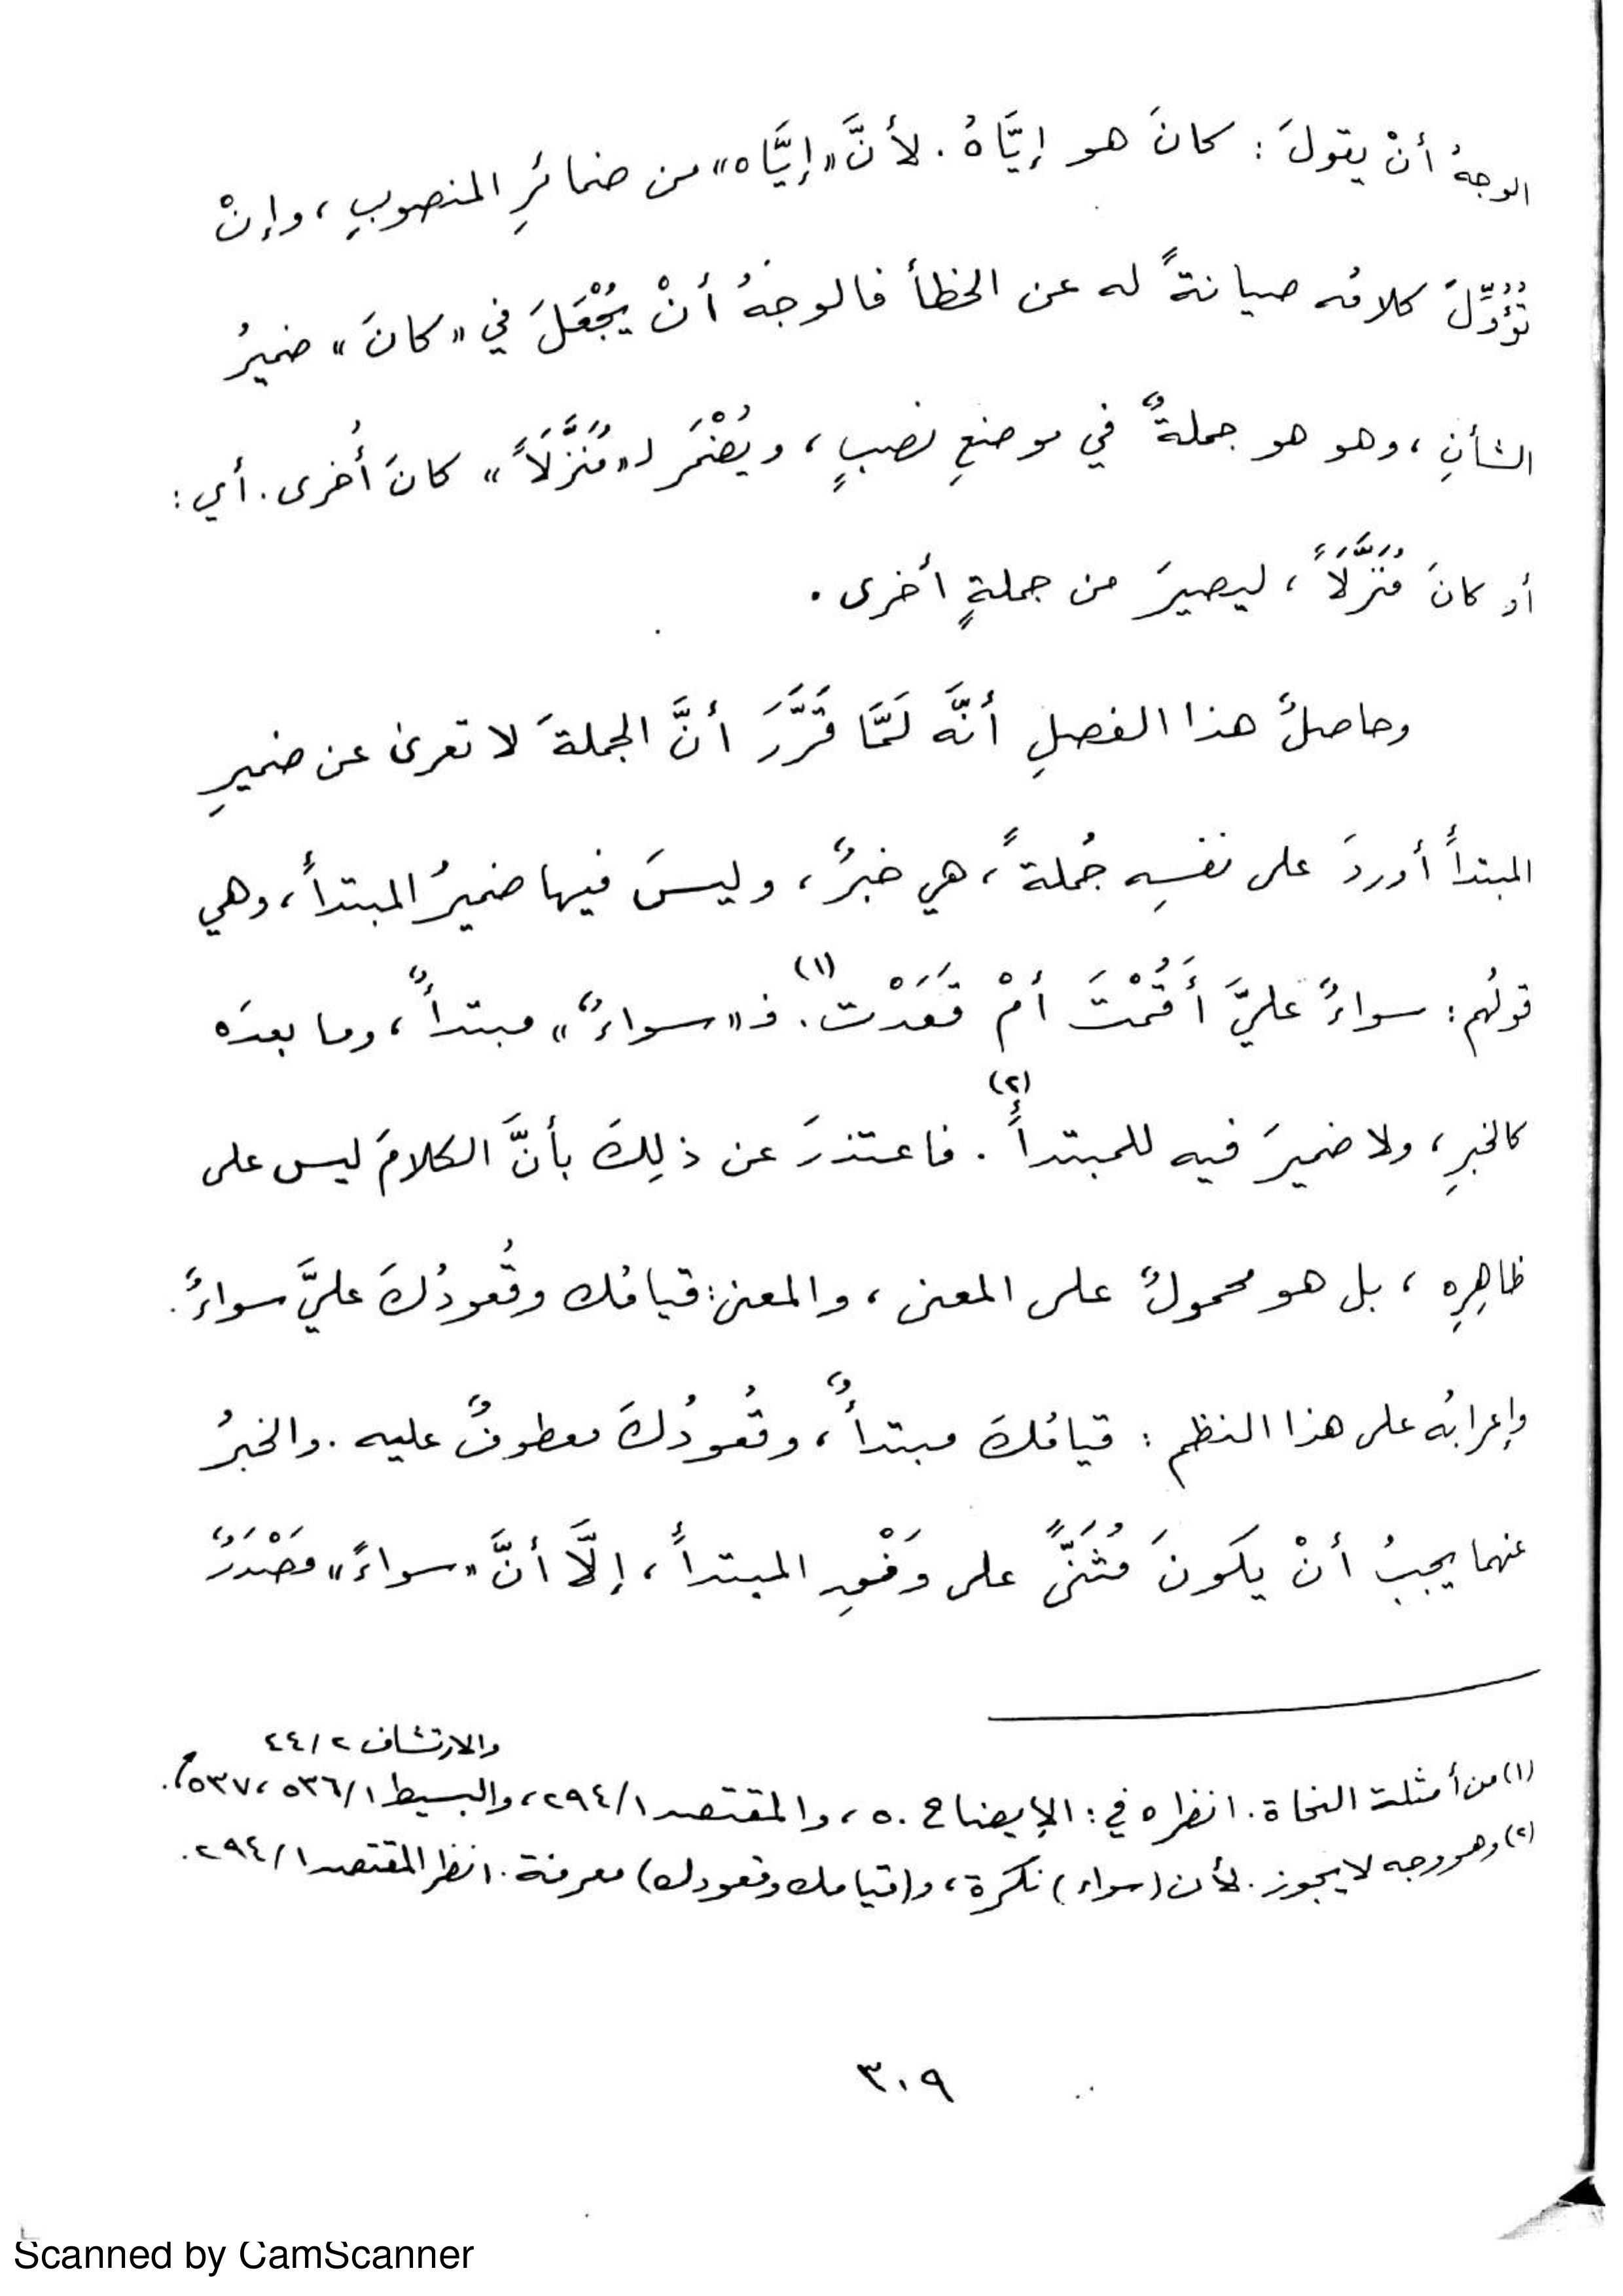 الوجهُ أنْ يقولَ : كانَ هو إيَّاهُ . لأنَّ «إيَّاه» من ضمائرِ المنصوبِ ، وإنْ
تُؤُوِّلَ كلامُه صيانةً له عن الخطأ فالوجهُ أنْ يُجْعَلَ في «كانَ» ضميرُ
الشأنِ ، وهو هو جملةٌ في موضعِ نصبٍ ، ويُضْمَر لـ«مُنَزَّلاً» كانَ أُخرى . أي :
أو كانَ مُنَزَّلاً ، ليصيرَ من جملةٍ أخرى .
وحاصلُ هذا الفصلِ أنَّه لَمَّا قَرَّرَ أنَّ الجملةَ لا تعرى عن ضميرِ
المبتدأ أوردَ على نفسِه جُملةً ، هي خبرٌ ، وليسَ فيها ضميرُ المبتدأ ، وهي
قولُهم : سواءٌ عليَّ أَقُمْتَ أمْ قَعَدْت(١) . فـ«سواءٌ» مبتدأٌ ، وما بعدَه
كالخبرِ ، ولا ضميرَ فيه للمبتدأ(٢) . فاعتذرَ عن ذلِكَ بأنَّ الكلامَ ليس على
ظاهِرِه ، بل هو محمولٌ على المعنى ، والمعنى : قيامُك وقُعودُكَ عليَّ سواءٌ .
وإعرابُه على هذا النظم : قيامُكَ مبتدأٌ ، وقُعودُكَ معطوفٌ عليه . والخبرُ
عنهما يجبُ أنْ يكونَ مُثَنًّى على وَفْقِ المبتدأ ، إلَّا أنَّ «سواءً» مَصْدَرٌ
والارتشاف ٢/٤٤
(١) من أمثلة النحاة . انظره في : الإيضاح ٥٠ ، والمقتصد ١/٢٩٤ ، والبسيط ١/٥٣٦ ، ٥٣٧ .
(٢) وهو وجه لا يجوز . لأن (سواء) نكرة ، و(قيامك وقعودك) معرفة . انظر المقتصد ١/٢٩٤ .
٣٠٩
Scanned by CamScanner